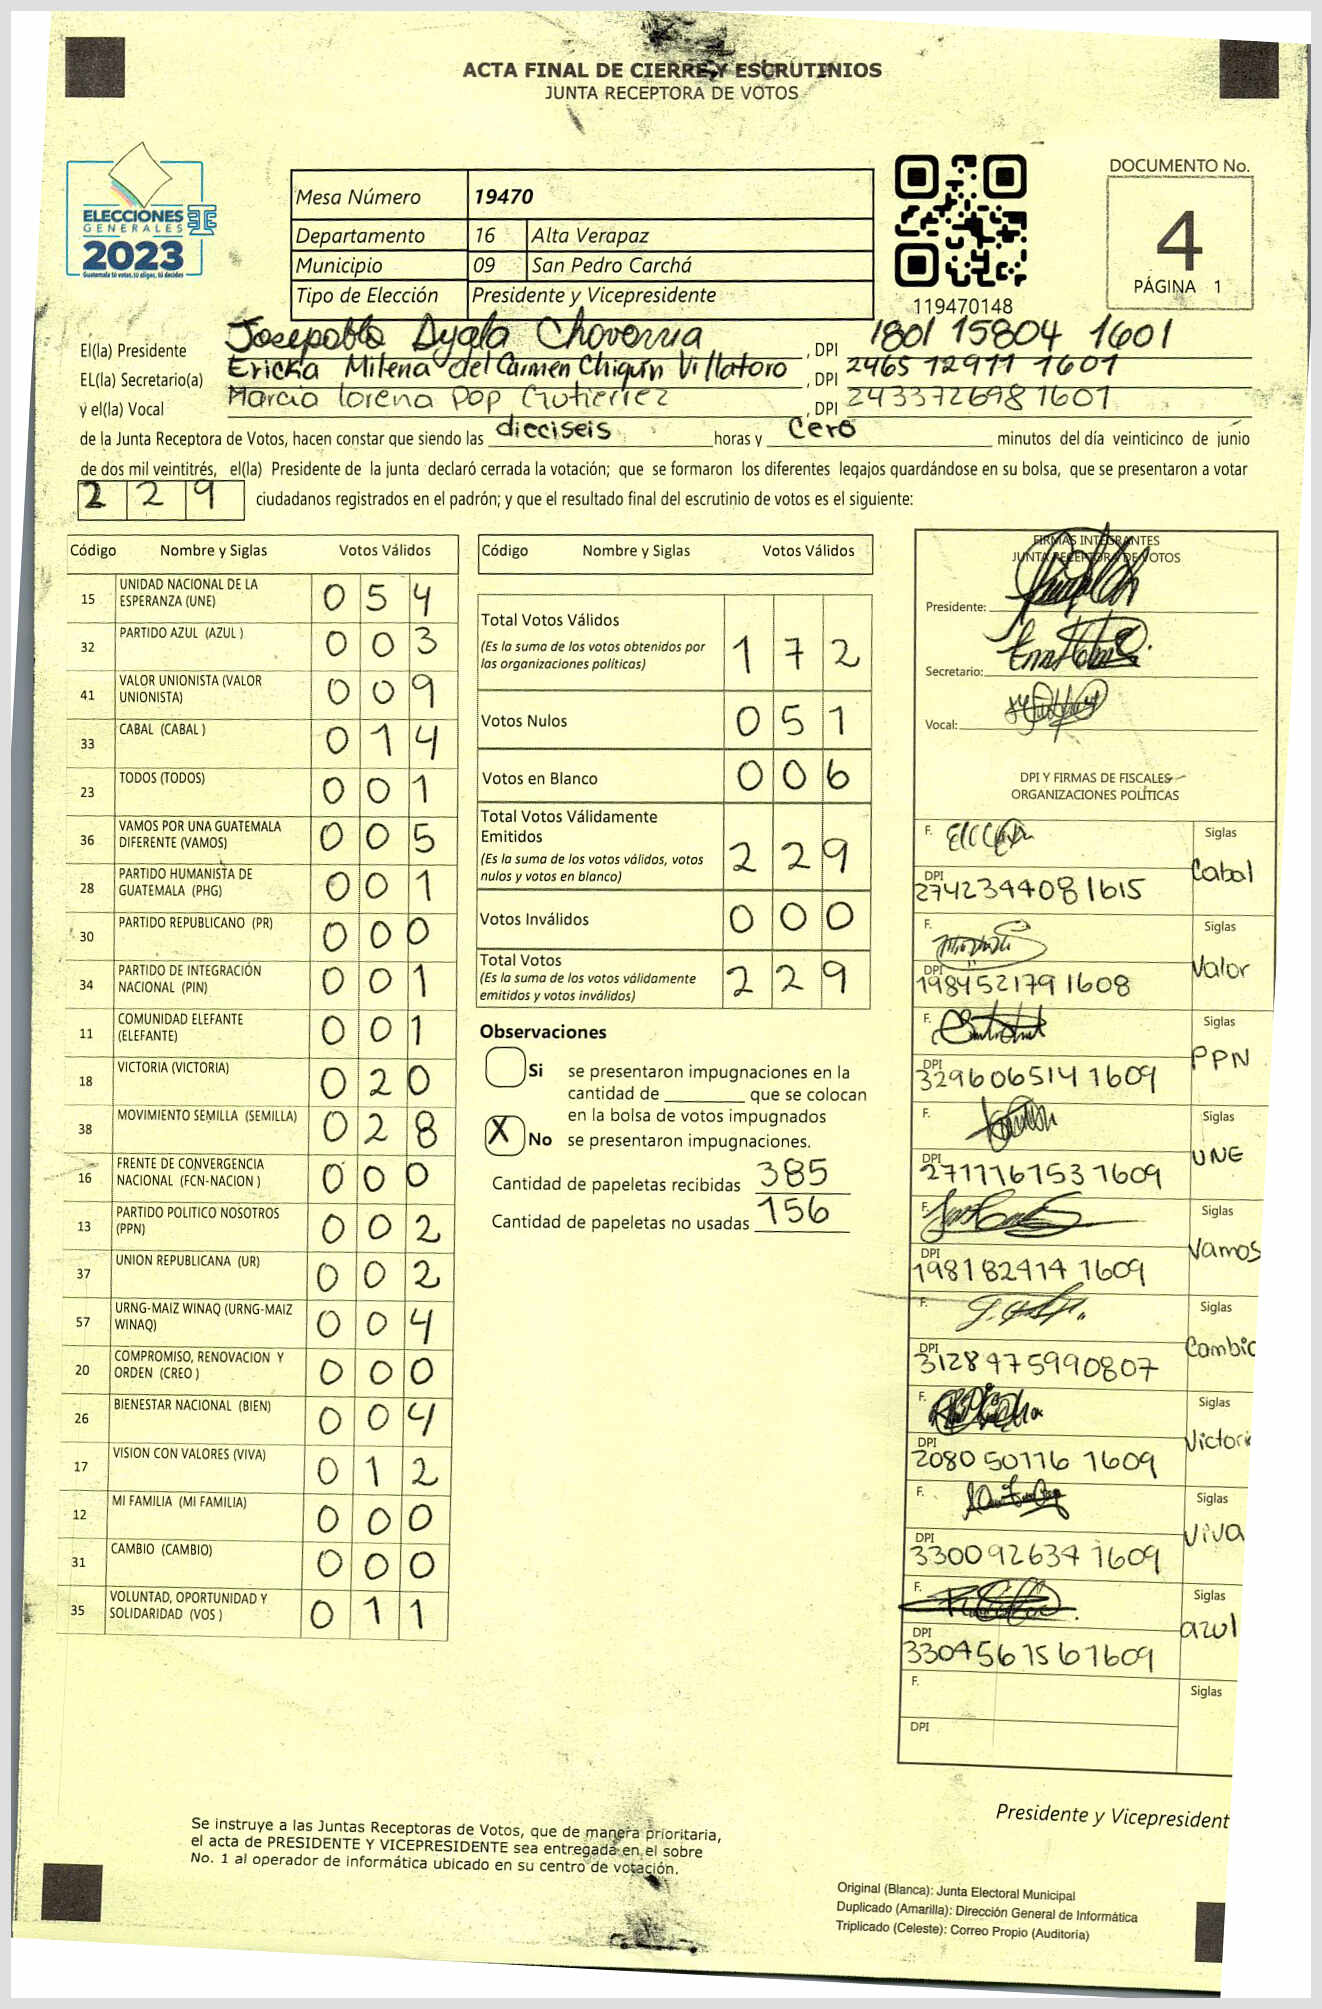 ACTA FINAL DE CIERRE Y ESCRUTINIOS
JUNTA RECEPTORA DE VOTOS
ELECCIONES
GENERALES
2023
Guatemala tú votas, tú eliges, tú decides
Mesa Número 19470
Departamento 16 Alta Verapaz
Municipio 09 San Pedro Carchá
Tipo de Elección Presidente y Vicepresidente
119470148
DOCUMENTO No.
4
PÁGINA 1
El(la) Presidente Josepablo Ayala Choverria , DPI 1801 15804 1601
EL(la) Secretario(a) Ericka Milena del Carmen Chiquín Villatoro , DPI 2465 12911 1601
y el(la) Vocal Marcia lorena Pop Gutierrez , DPI 243372698 1601
de la Junta Receptora de Votos, hacen constar que siendo las dieciseis horas y Cero minutos del día veinticinco de junio
de dos mil veintitrés, el(la) Presidente de la junta declaró cerrada la votación; que se formaron los diferentes legajos quardándose en su bolsa, que se presentaron a votar
2 2 9 ciudadanos registrados en el padrón; y que el resultado final del escrutinio de votos es el siguiente:
Código Nombre y Siglas Votos Válidos
15 UNIDAD NACIONAL DE LA ESPERANZA (UNE) 0 5 4
32 PARTIDO AZUL (AZUL ) 0 0 3
41 VALOR UNIONISTA (VALOR UNIONISTA) 0 0 9
33 CABAL (CABAL ) 0 1 4
23 TODOS (TODOS) 0 0 1
36 VAMOS POR UNA GUATEMALA DIFERENTE (VAMOS) 0 0 5
28 PARTIDO HUMANISTA DE GUATEMALA (PHG) 0 0 1
30 PARTIDO REPUBLICANO (PR) 0 0 0
34 PARTIDO DE INTEGRACIÓN NACIONAL (PIN) 0 0 1
11 COMUNIDAD ELEFANTE (ELEFANTE) 0 0 1
18 VICTORIA (VICTORIA) 0 2 0
38 MOVIMIENTO SEMILLA (SEMILLA) 0 2 8
16 FRENTE DE CONVERGENCIA NACIONAL (FCN-NACION ) 0 0 0
13 PARTIDO POLITICO NOSOTROS (PPN) 0 0 2
37 UNION REPUBLICANA (UR) 0 0 2
57 URNG-MAIZ WINAQ (URNG-MAIZ WINAQ) 0 0 4
20 COMPROMISO, RENOVACION Y ORDEN (CREO ) 0 0 0
26 BIENESTAR NACIONAL (BIEN) 0 0 4
17 VISION CON VALORES (VIVA) 0 1 2
12 MI FAMILIA (MI FAMILIA) 0 0 0
31 CAMBIO (CAMBIO) 0 0 0
35 VOLUNTAD, OPORTUNIDAD Y SOLIDARIDAD (VOS ) 0 1 1
Código Nombre y Siglas Votos Válidos
Total Votos Válidos
(Es la suma de los votos obtenidos por
las organizaciones políticas) 1 7 2
Votos Nulos 0 5 1
Votos en Blanco 0 0 6
Total Votos Válidamente
Emitidos
(Es la suma de los votos válidos, votos
nulos y votos en blanco) 2 2 9
Votos Inválidos 0 0 0
Total Votos
(Es la suma de los votos válidamente
emitidos y votos inválidos) 2 2 9
Observaciones
Si se presentaron impugnaciones en la
cantidad de ________ que se colocan
en la bolsa de votos impugnados
X No se presentaron impugnaciones.
Cantidad de papeletas recibidas 385
Cantidad de papeletas no usadas 156
FIRMAS INTEGRANTES
JUNTA RECEPTORA DE VOTOS
Presidente:
Secretario:
Vocal:
DPI Y FIRMAS DE FISCALES
ORGANIZACIONES POLÍTICAS
F. Siglas
DPI 2742344081615 Cabal
F. Siglas
DPI 1984521791608 Valor
F. Siglas
DPI 3296065141609 PPN
F. Siglas
DPI 2711161531609 UNE
F. Siglas
DPI 1981824141609 Vamos
F. Siglas
DPI 3128475990807 Cambio
F. Siglas
DPI 2080501161609 Victoria
F. Siglas
DPI 3300926341609 Viva
F. Siglas
DPI 3304561561609 azul
F. Siglas
DPI
Presidente y Vicepresident
Se instruye a las Juntas Receptoras de Votos, que de manera prioritaria,
el acta de PRESIDENTE Y VICEPRESIDENTE sea entregada en el sobre
No. 1 al operador de informática ubicado en su centro de votación.
Original (Blanca): Junta Electoral Municipal
Duplicado (Amarilla): Dirección General de Informática
Triplicado (Celeste): Correo Propio (Auditoría)